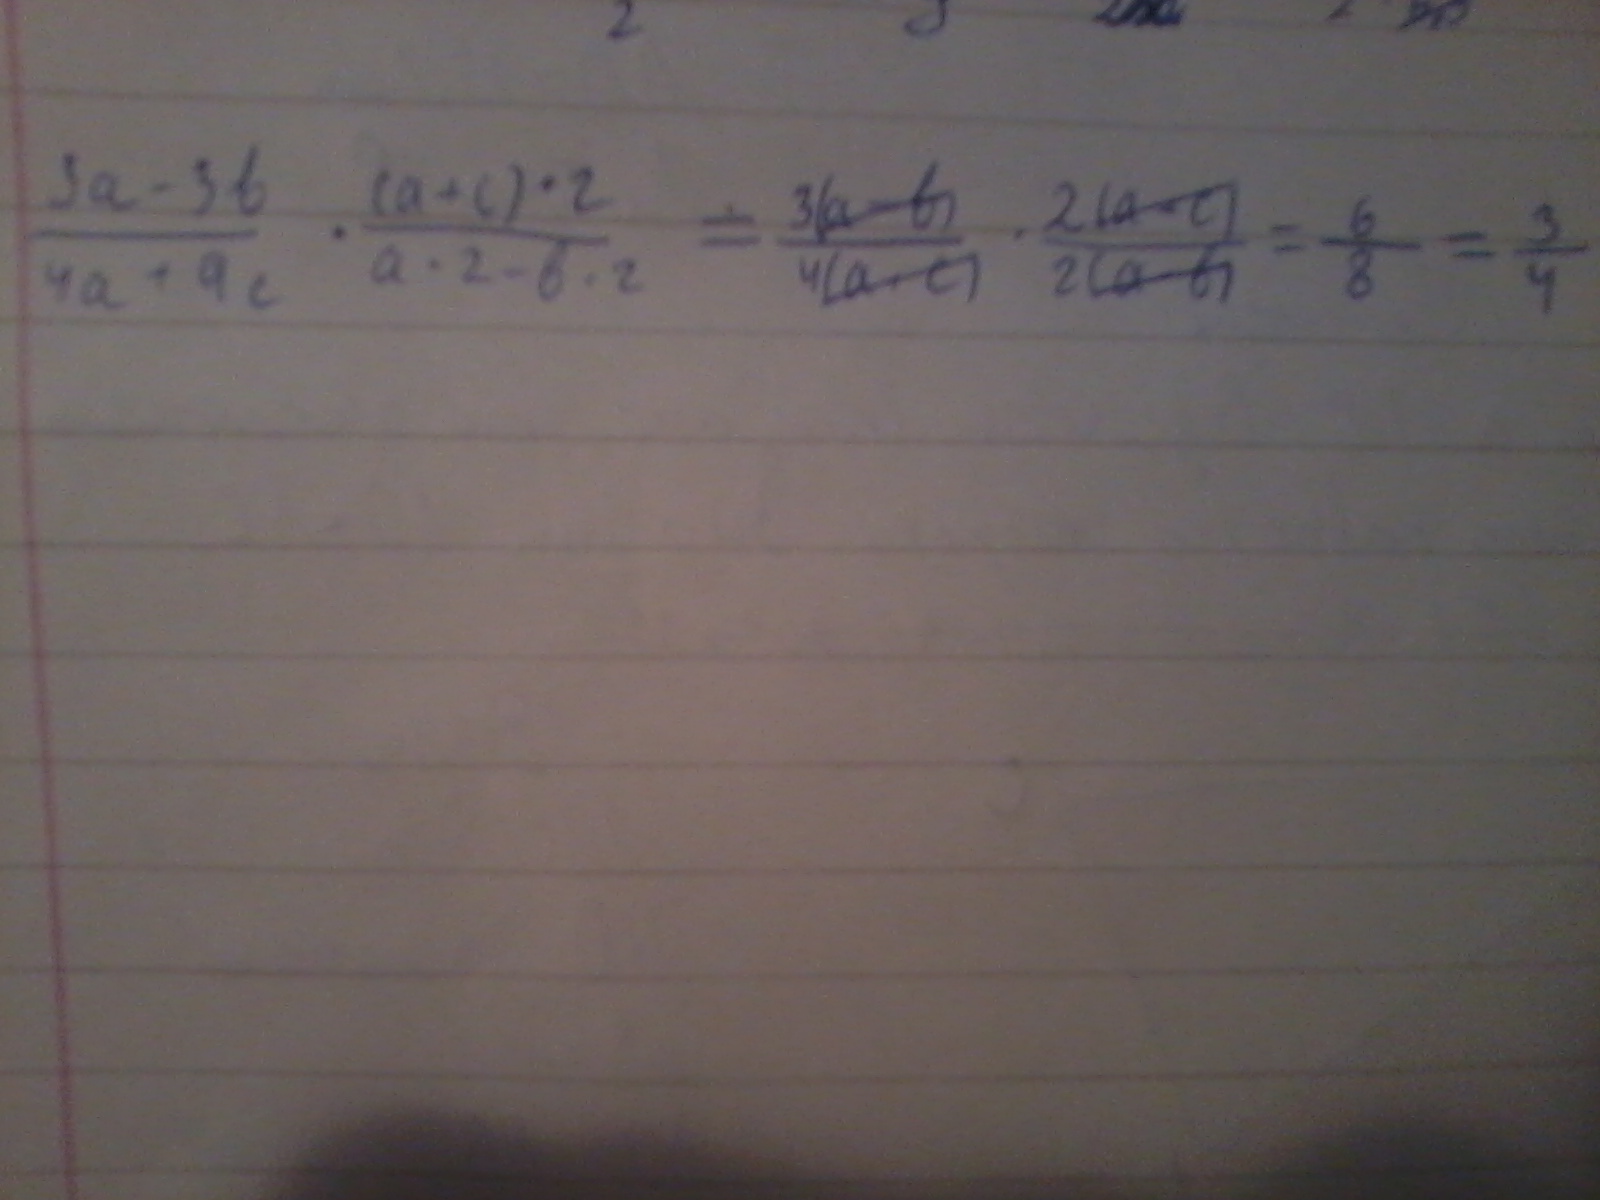 (3a - 3b)/(4a + 9c) · ((a + c) · 2)/(a · 2 - b · 2) = 3(a - b)/4(a + c) · 2(a + c)/2(a - b) = 6/8 = 3/4